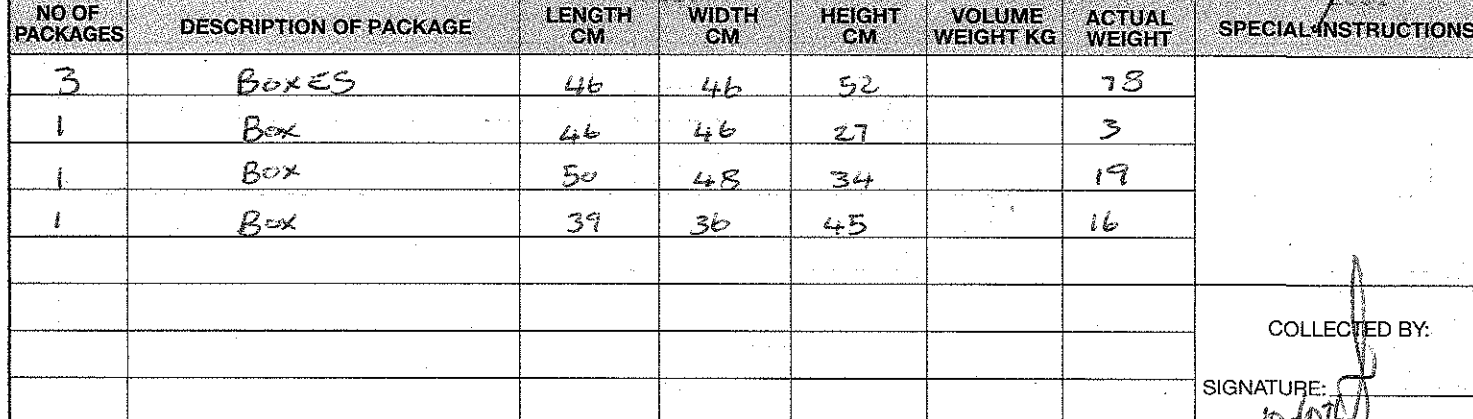 NO OF PACKAGES DESCRIPTION OF PACKAGE LENGTH CM WIDTH CM HEIGHT CM VOLUME WEIGHT KG ACTUAL WEIGHT SPECIAL INSTRUCTIONS
3 BOXES 46 46 52 78
1 Box 46 46 27 3
1 Box 50 48 34 19
1 Box 39 36 45 16
COLLECTED BY:
SIGNATURE: